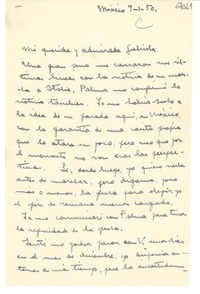 México 9-1-50.
C
Mi querida y admirada Gabriela:
Una gran pena me causaron sus
líneas con la noticia de su mar-
cha a Italia, Palma me confirmó la
noticia también. Yo me había hecho a
la idea de su parada aquí, en México,
con la garantía de una
que la atara un poco, pero veo que por
el momento no son esas las perspec-
tivas. Si, desde luego, yo quiero verla
antes de marchar, pero digame, poco
mas o menos, la fecha para elegir yo
el fin de semana menos cargado.
Yo me comunicaré con Palma para tener
la seguridad de la fecha.
Sentí no poder pasar con V. unos días
en el mes de diciembre, yo disponía en-
tonces de más tiempo, pero la incertidumbre